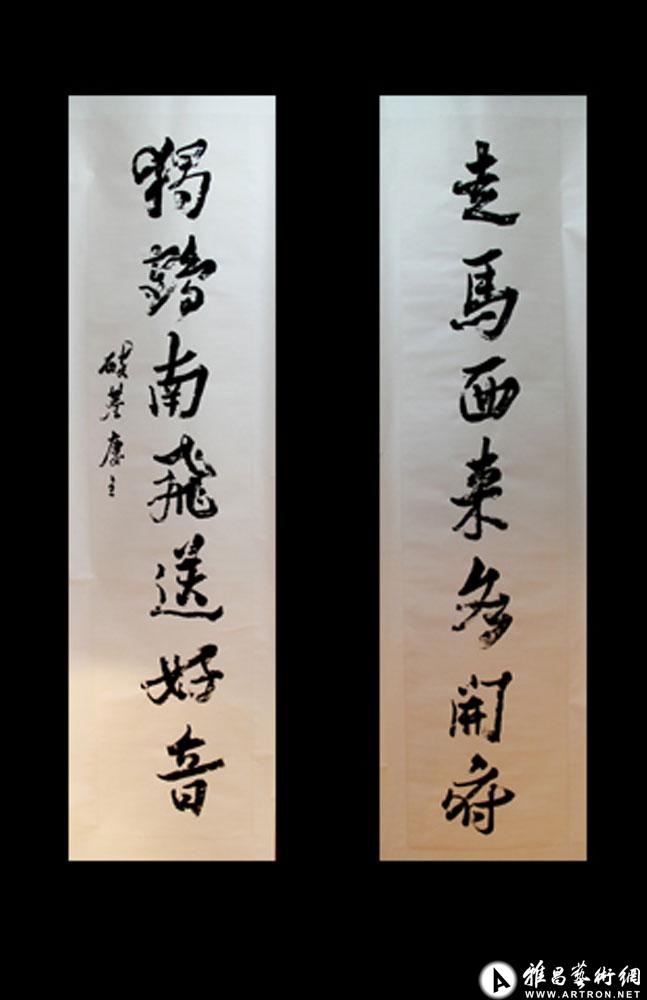 走馬西来多開府
獨鶴南飛送好音
主
A
雅昌藝術網
WWW.ARTRON.NET